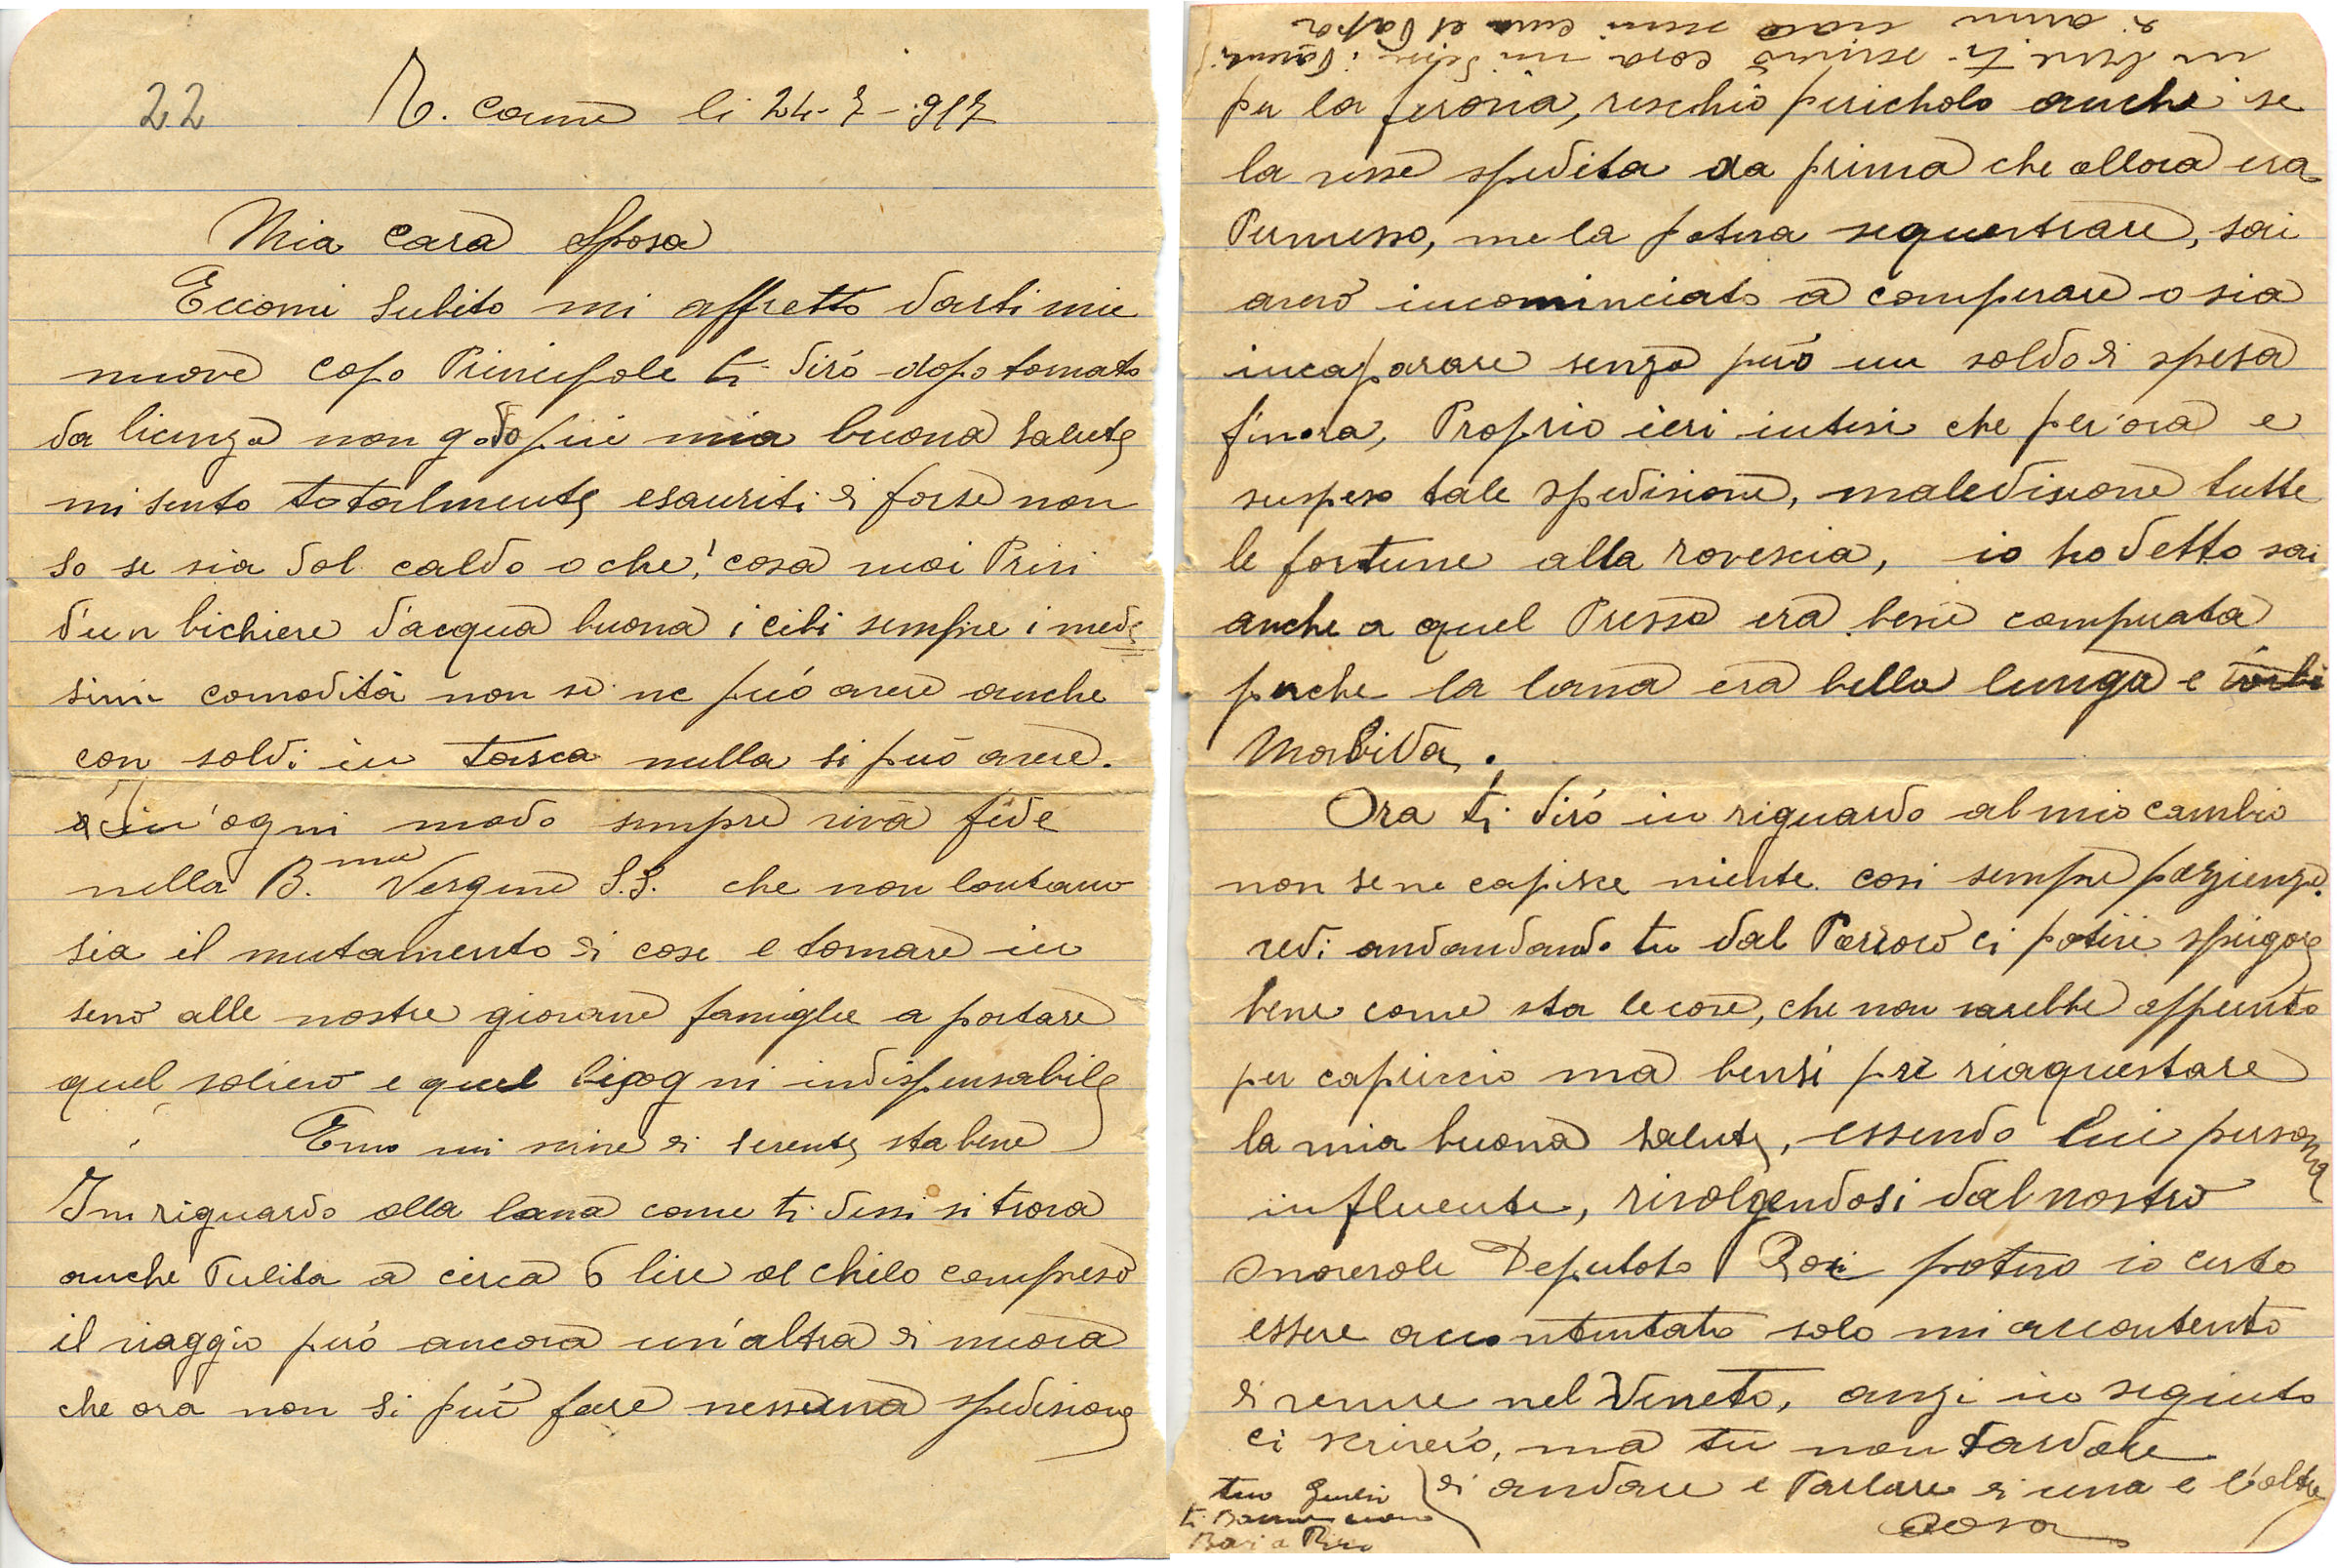 22
Z. Carnia li 24-7-917
Mia cara Sposa
Eccomi subito mi affretto darti mie
nuove capo Principale ti dirò dopo tornato
da licenza non godo piu mia buona salute
mi sento totalmente esauriti di forse non
so se sia dal caldo o che! cosa vuoi Privi
d'un bichiere d'acqua buona i cibi sempre i mede
simi comodità non se ne può avere anche
con soldi in tasca nulla si può avere.
in ogni modo sempre viva fede
nella B.ma Vergine S.S. che non lontano
sia il mutamento di cose e tornare in
seno alle nostre giovane famiglie a portare
quel solievo e quel bisogni indispensabile
mi scrive di serente sta bene
In riguardo alla lana come ti dissi si trova
anche Pulita a circa 6 lire al chilo compreso
il viaggio però ancora un'altra di nuova
che ora non si può fare nessuna spedisione
per la ferovia, reschio pericholo anche se
la vesse spedita da prima che allora era
Permesso, me la poteva sequestrare, sai
avevo incominciato a comperare o sia
incaparare senza però un soldo di spesa
finora, Proprio ieri intesi che per ora e
suspeso tale spedisione, maledisione tutte
le fortune alla rovescia, io ho detto sai
anche a quel Presso era bene comperata
perche la lana era bella lunga e
Morbida.
Ora ti dirò in riguardo al mio cambio
non se ne capisce niente così sempre pazienza.
vedi andandando tu dal Parroco ci potevi spiegare
bene come sta le cose, che non sarebbe appunto
per capriccio ma bensi per riaquestare
la mia buona salute, essendo lui persona
influente, rivolgendosi dal nostro
Onorevole Deputato Roi potevo io certo
essere accontentato solo mi accontento
di venire nel Veneto, anzi in seguito
ci scriverò, ma tu non tardare
di andare e Parlare di una e l'altra
cosa
tuo Giulio
ti
Baci a Piero
ti scrivo cosa mi disse i Parenti